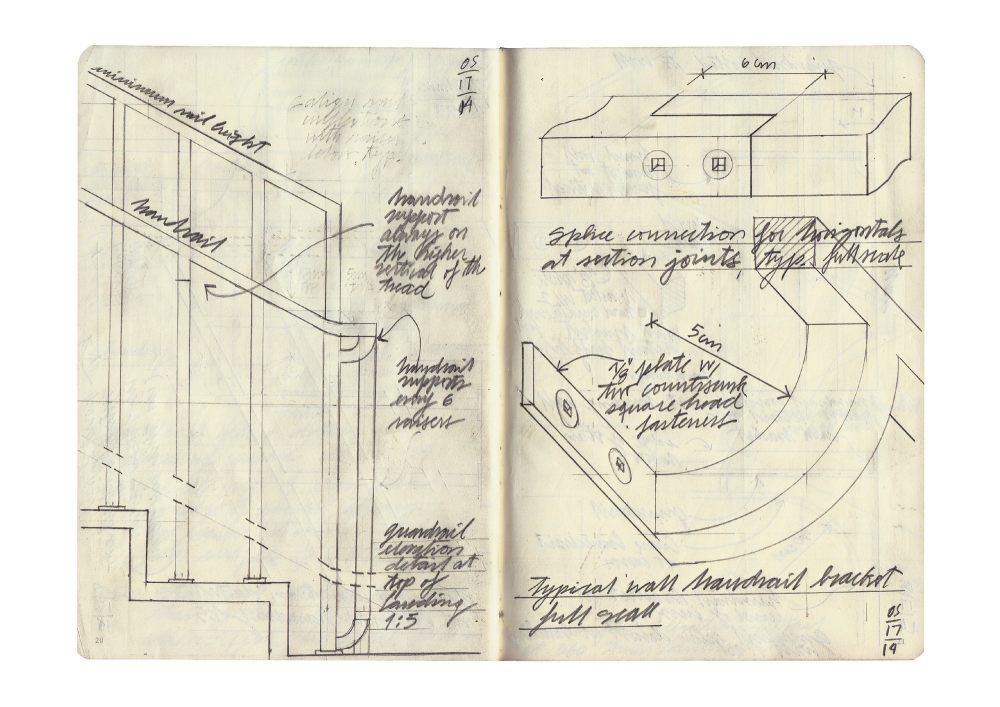 minimum rail height
05
17
14
handrail
handrail
support
always on
the higher
vertical of th
tread
handrail
supports
every 6
raisers
guardrail
elevation
detail at
top of
landing
1:5
20
6 cm
splice connection for horizontals
at section joints, typ. full scale
5 cm
plate w/
two countrsunk
square head
fastenert
typical wall handrail bracket
full scall
05
17
14